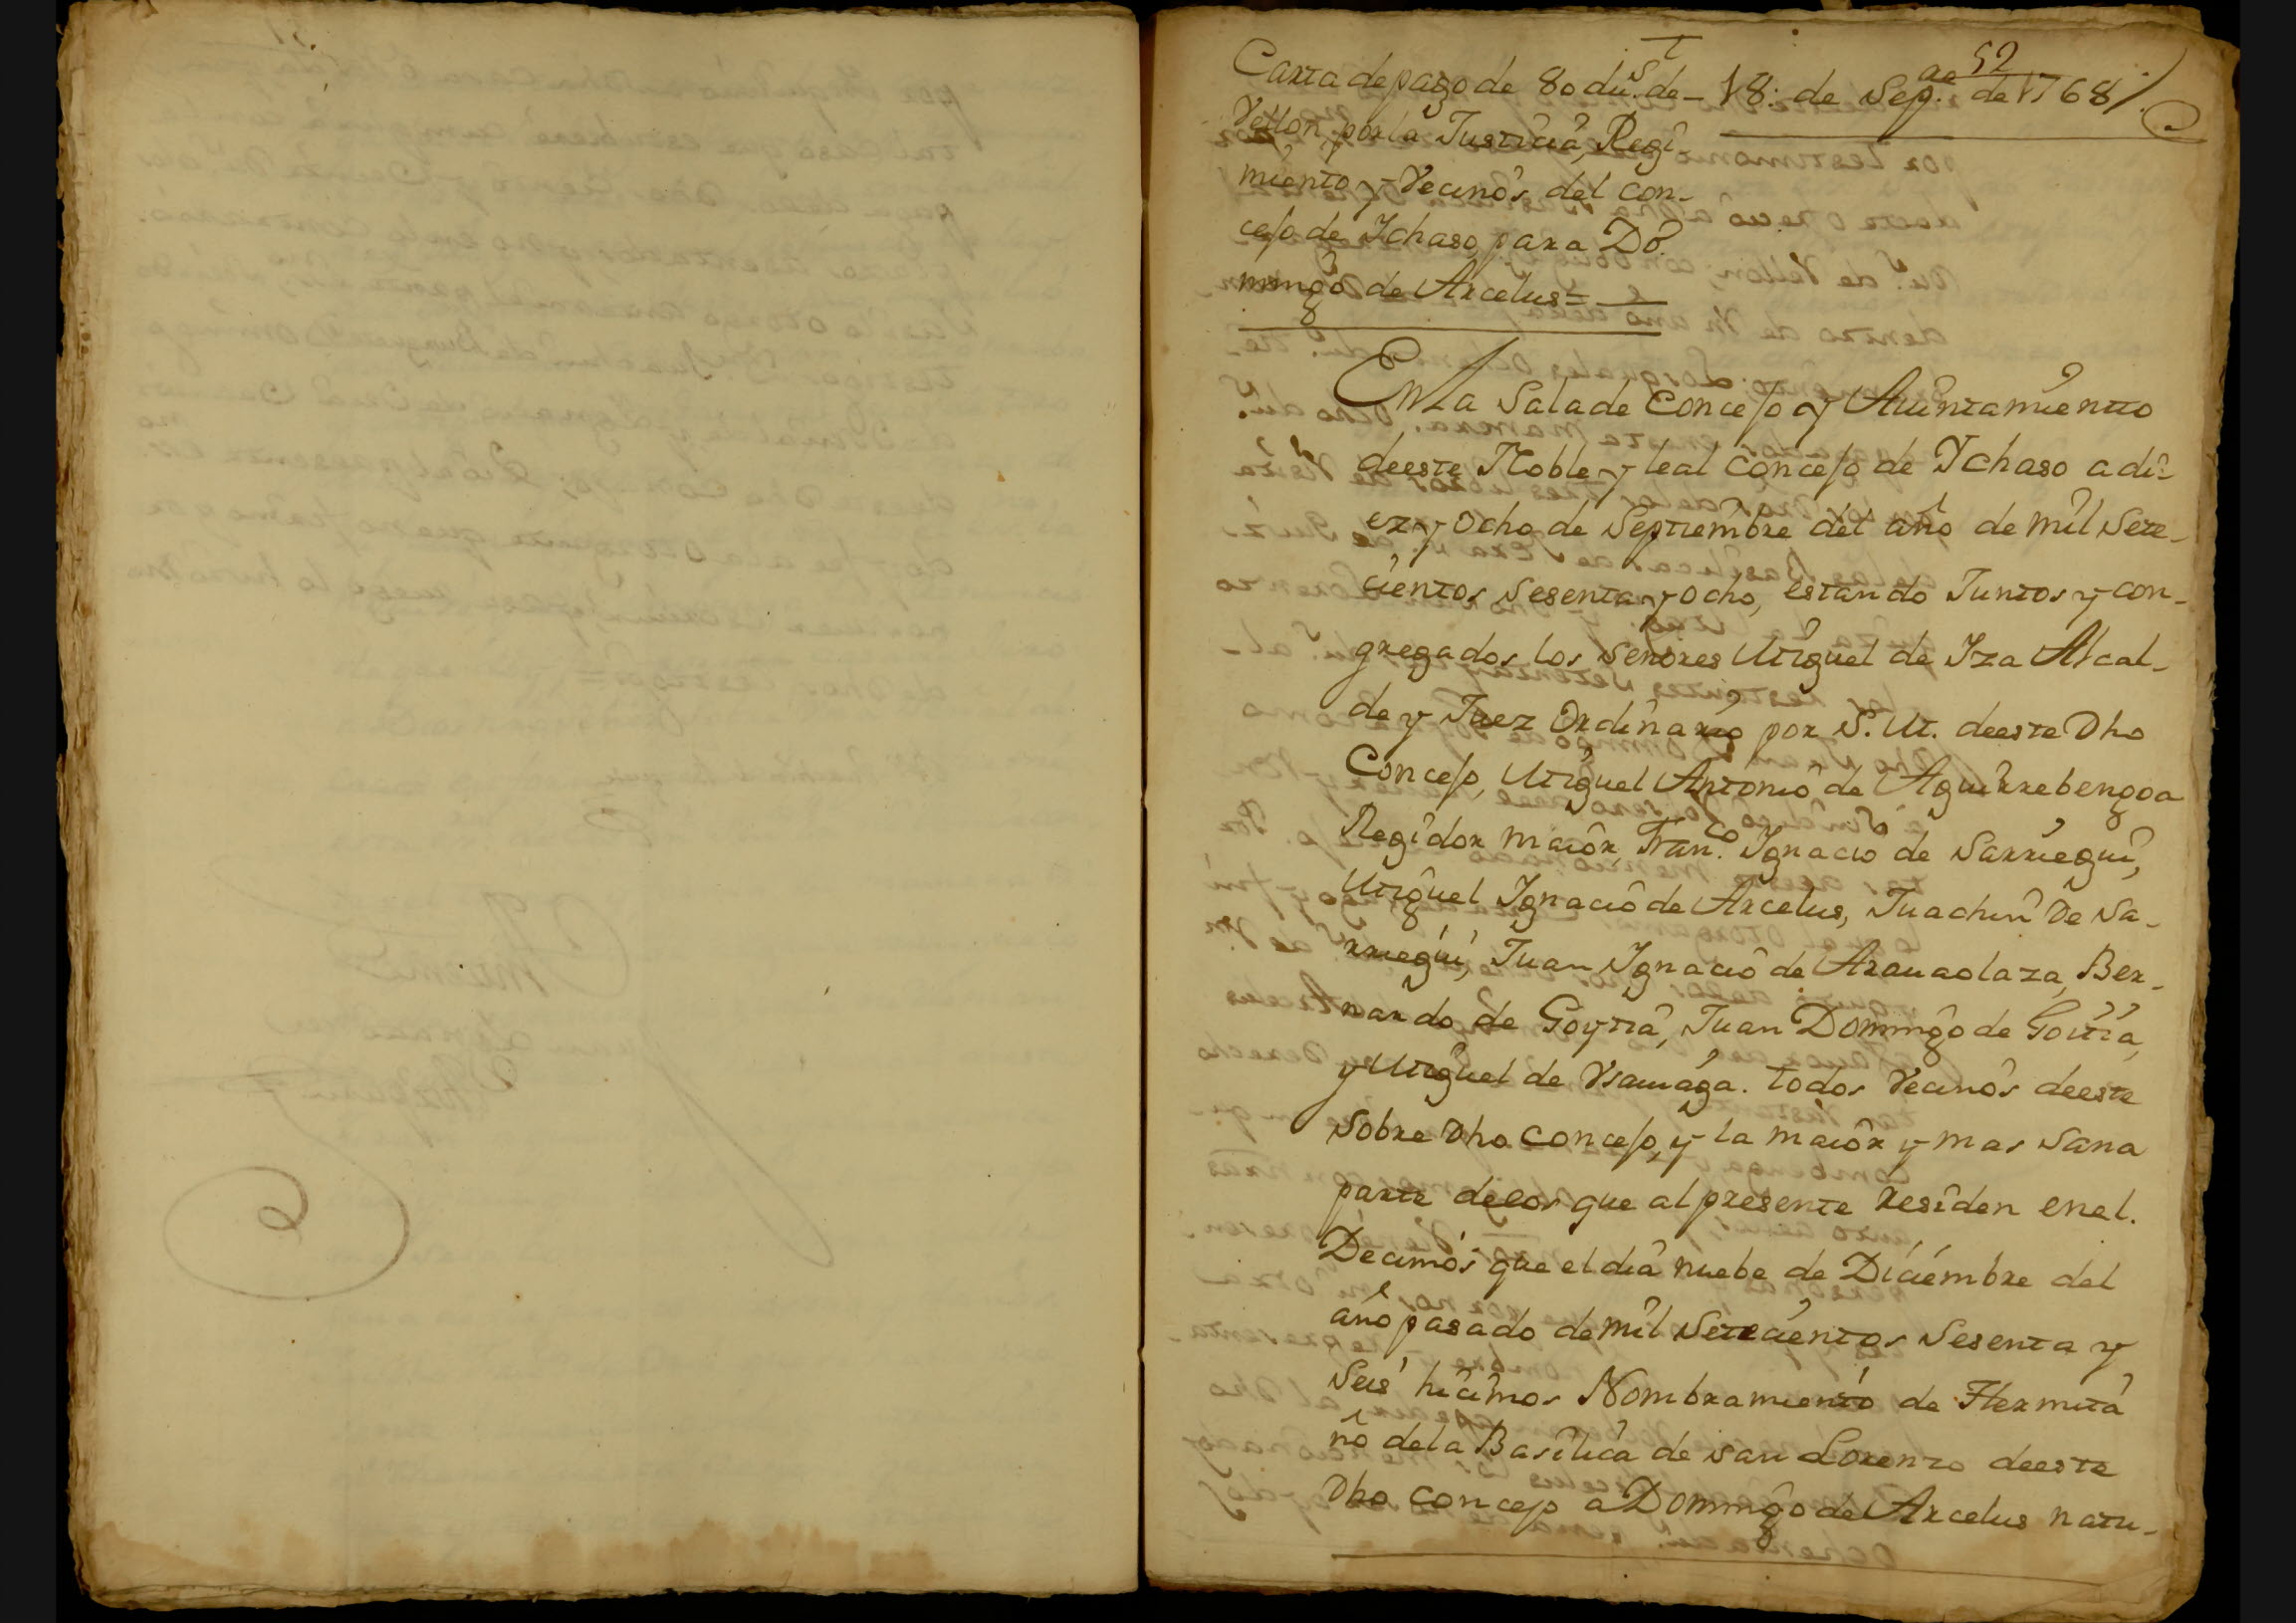 52
Carta de pago de 80 du.s de
Vellon, por la Justicia, Regi
miento, y Vecinos del con-
cejo de Ychaso, para Do-
mingo de Arcelus =
18. de Sep.re de 1768/.
En La Sala de Concejo y Aiuntamientto
deeste Noble y leal Concejo de Ychaso a di-
ez y Ocho de Septiembre del año de mil Sete-
cientos Sesenta y Ocho, estando Juntos y con-
gregados los Señores Miguel de Yza Alcal-
de y Juez Ordinario por S. M. deeste Dho
Concejo, Miguel Antonio de Aguirrebengoa
Regidor maior, Fran.co Ygnacio de Sarriegui,
Miguel Ygnacio de Arcelus, Juachin De Sa-
rriegui, Juan Ygnacio de Aranaolaza, Ber-
nardo de Goytia, Juan Domingo de Goitia,
y Miguel de Vsamaga. todos Vecinos deeste
Sobre Dho Concejo, y la maior y mas Sana
parte delos que al presente residen enel.
Decimos que el dia nuebe de Diciembre del
año pasado de mil Setecientos Sesenta y
Seis hicimos Nombramiento de Hermita
ño dela Basilica de San Lorenzo deeste
Dho concejo a Domingo de Arcelus natu-